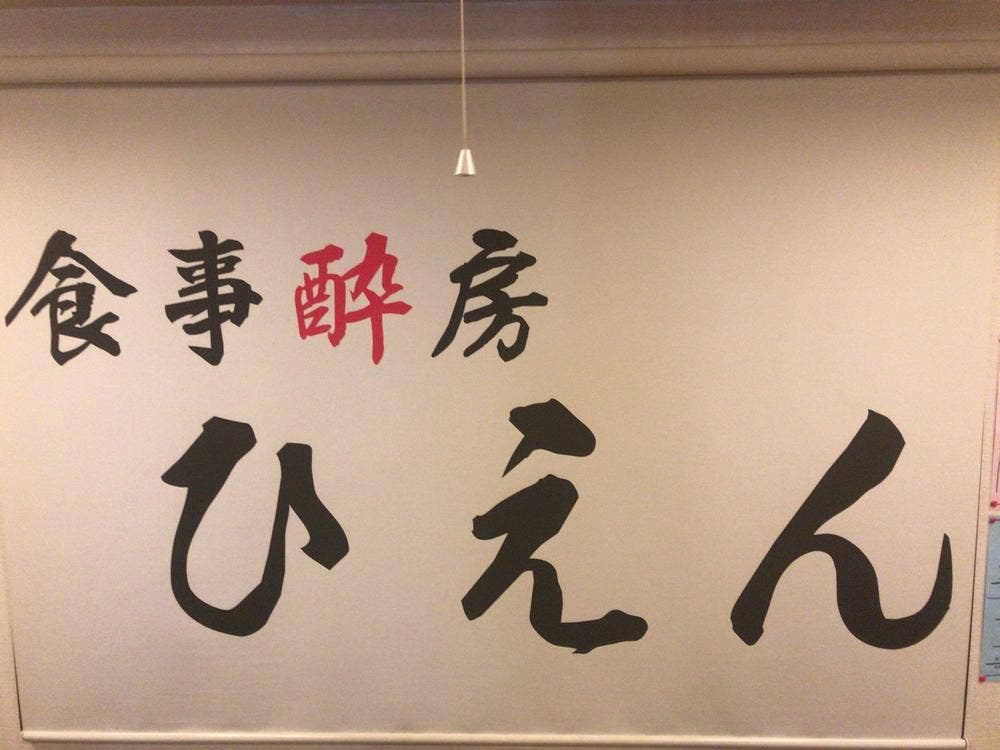 食事酔房
ひえん